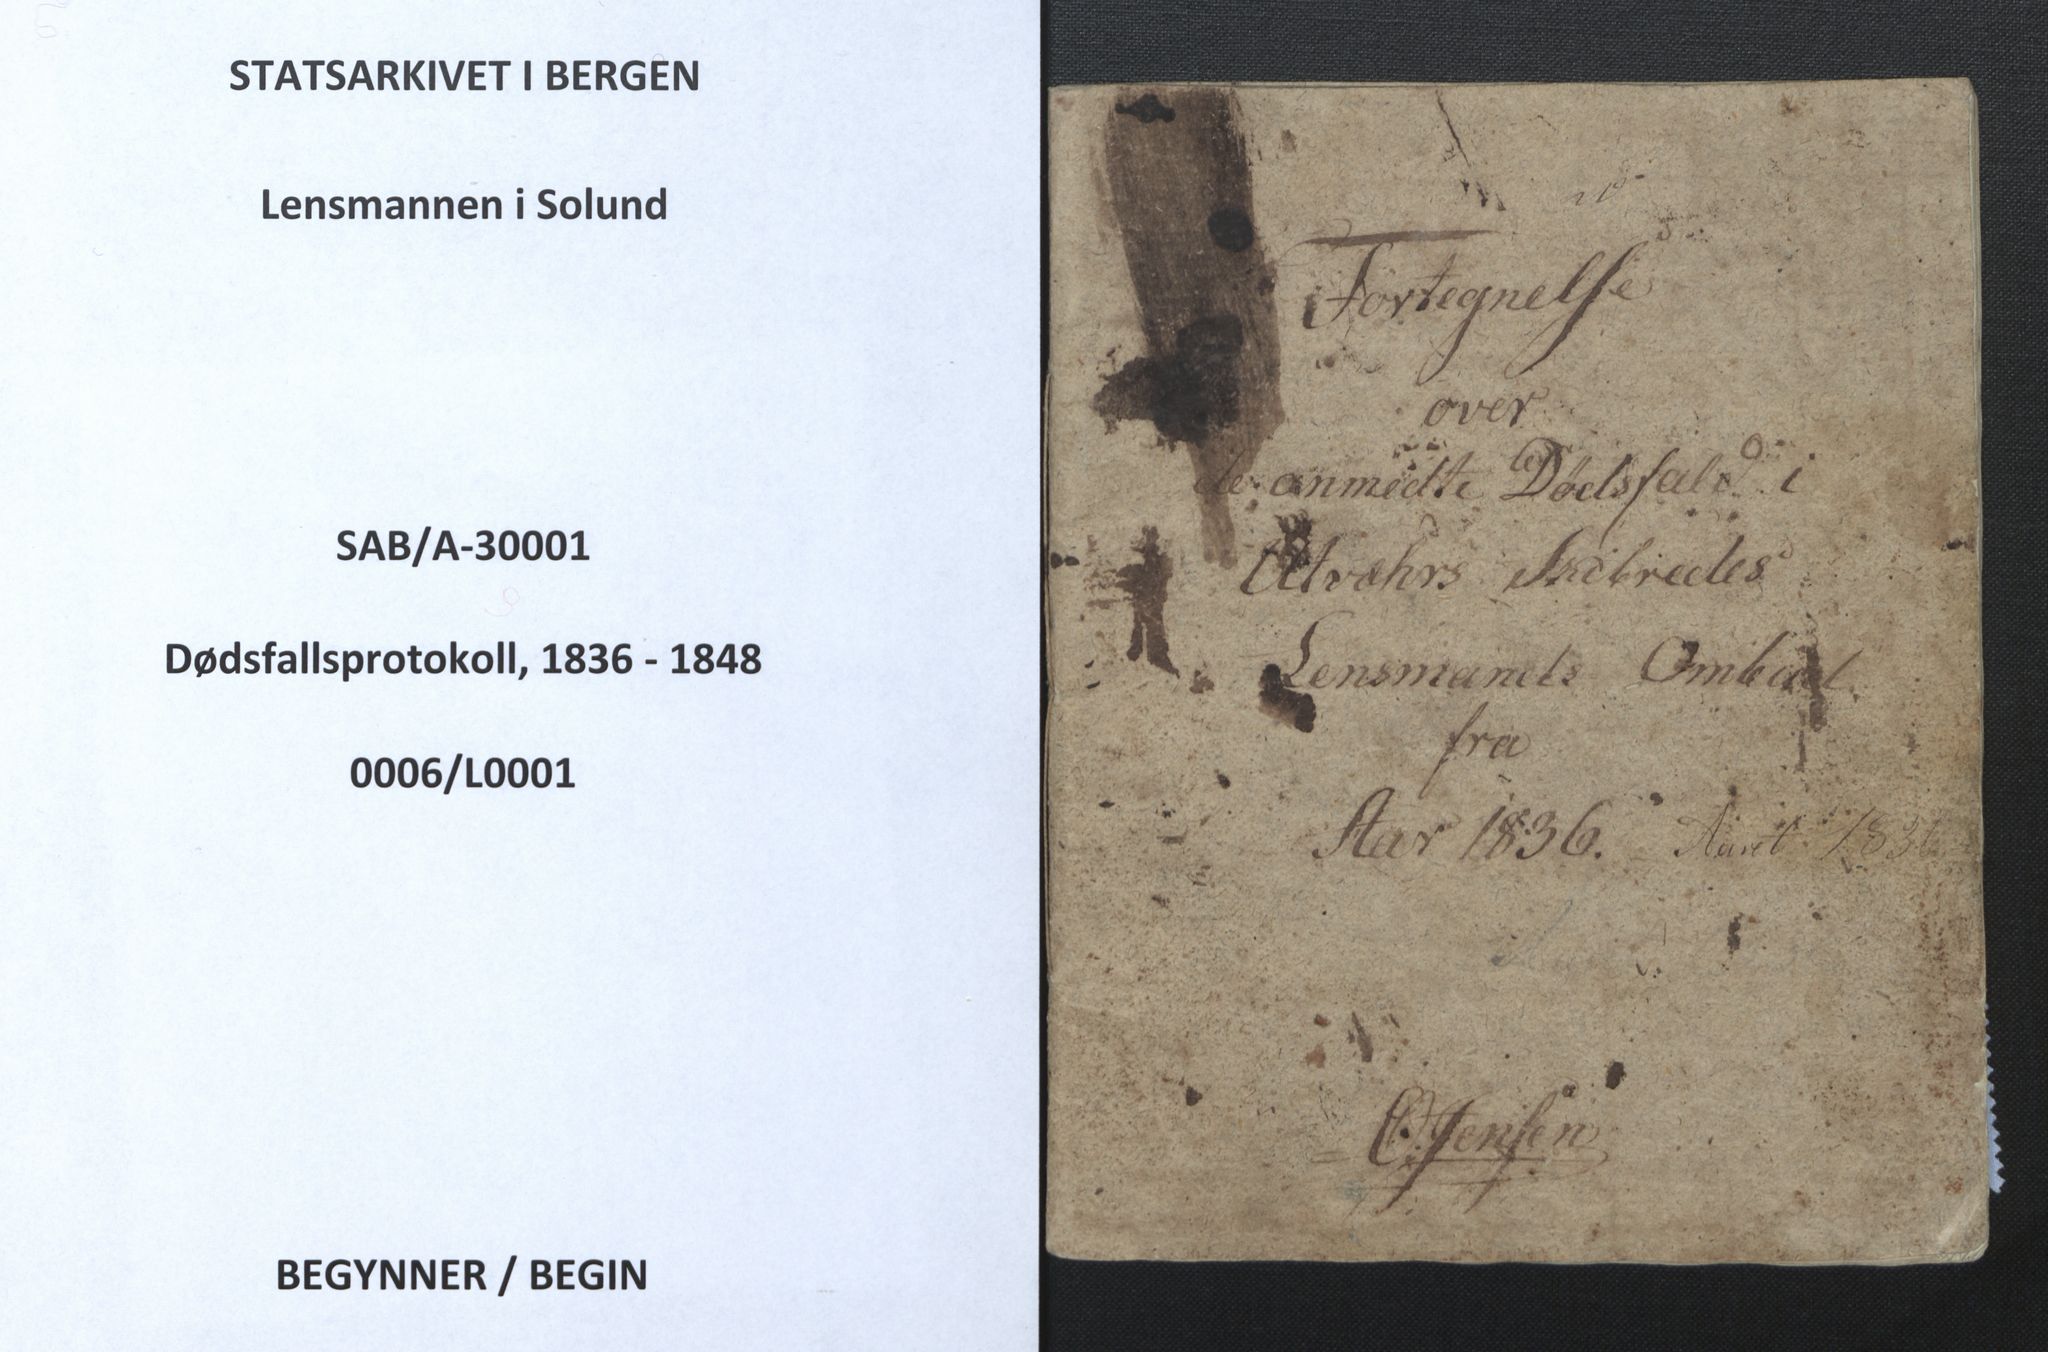 STATSARKIVET I BERGEN
Lensmannen i Solund
SAB/A-30001
Dødsfallsprotokoll, 1836 - 1848
0006/L0001
BEGYNNER / BEGIN
Fortegnelse
over
de anmeldte Dødsfald i
Utvæhrs Skibredes
Lensmands Ombud
fra
Aar 1836. Aaret 1836
Jensen